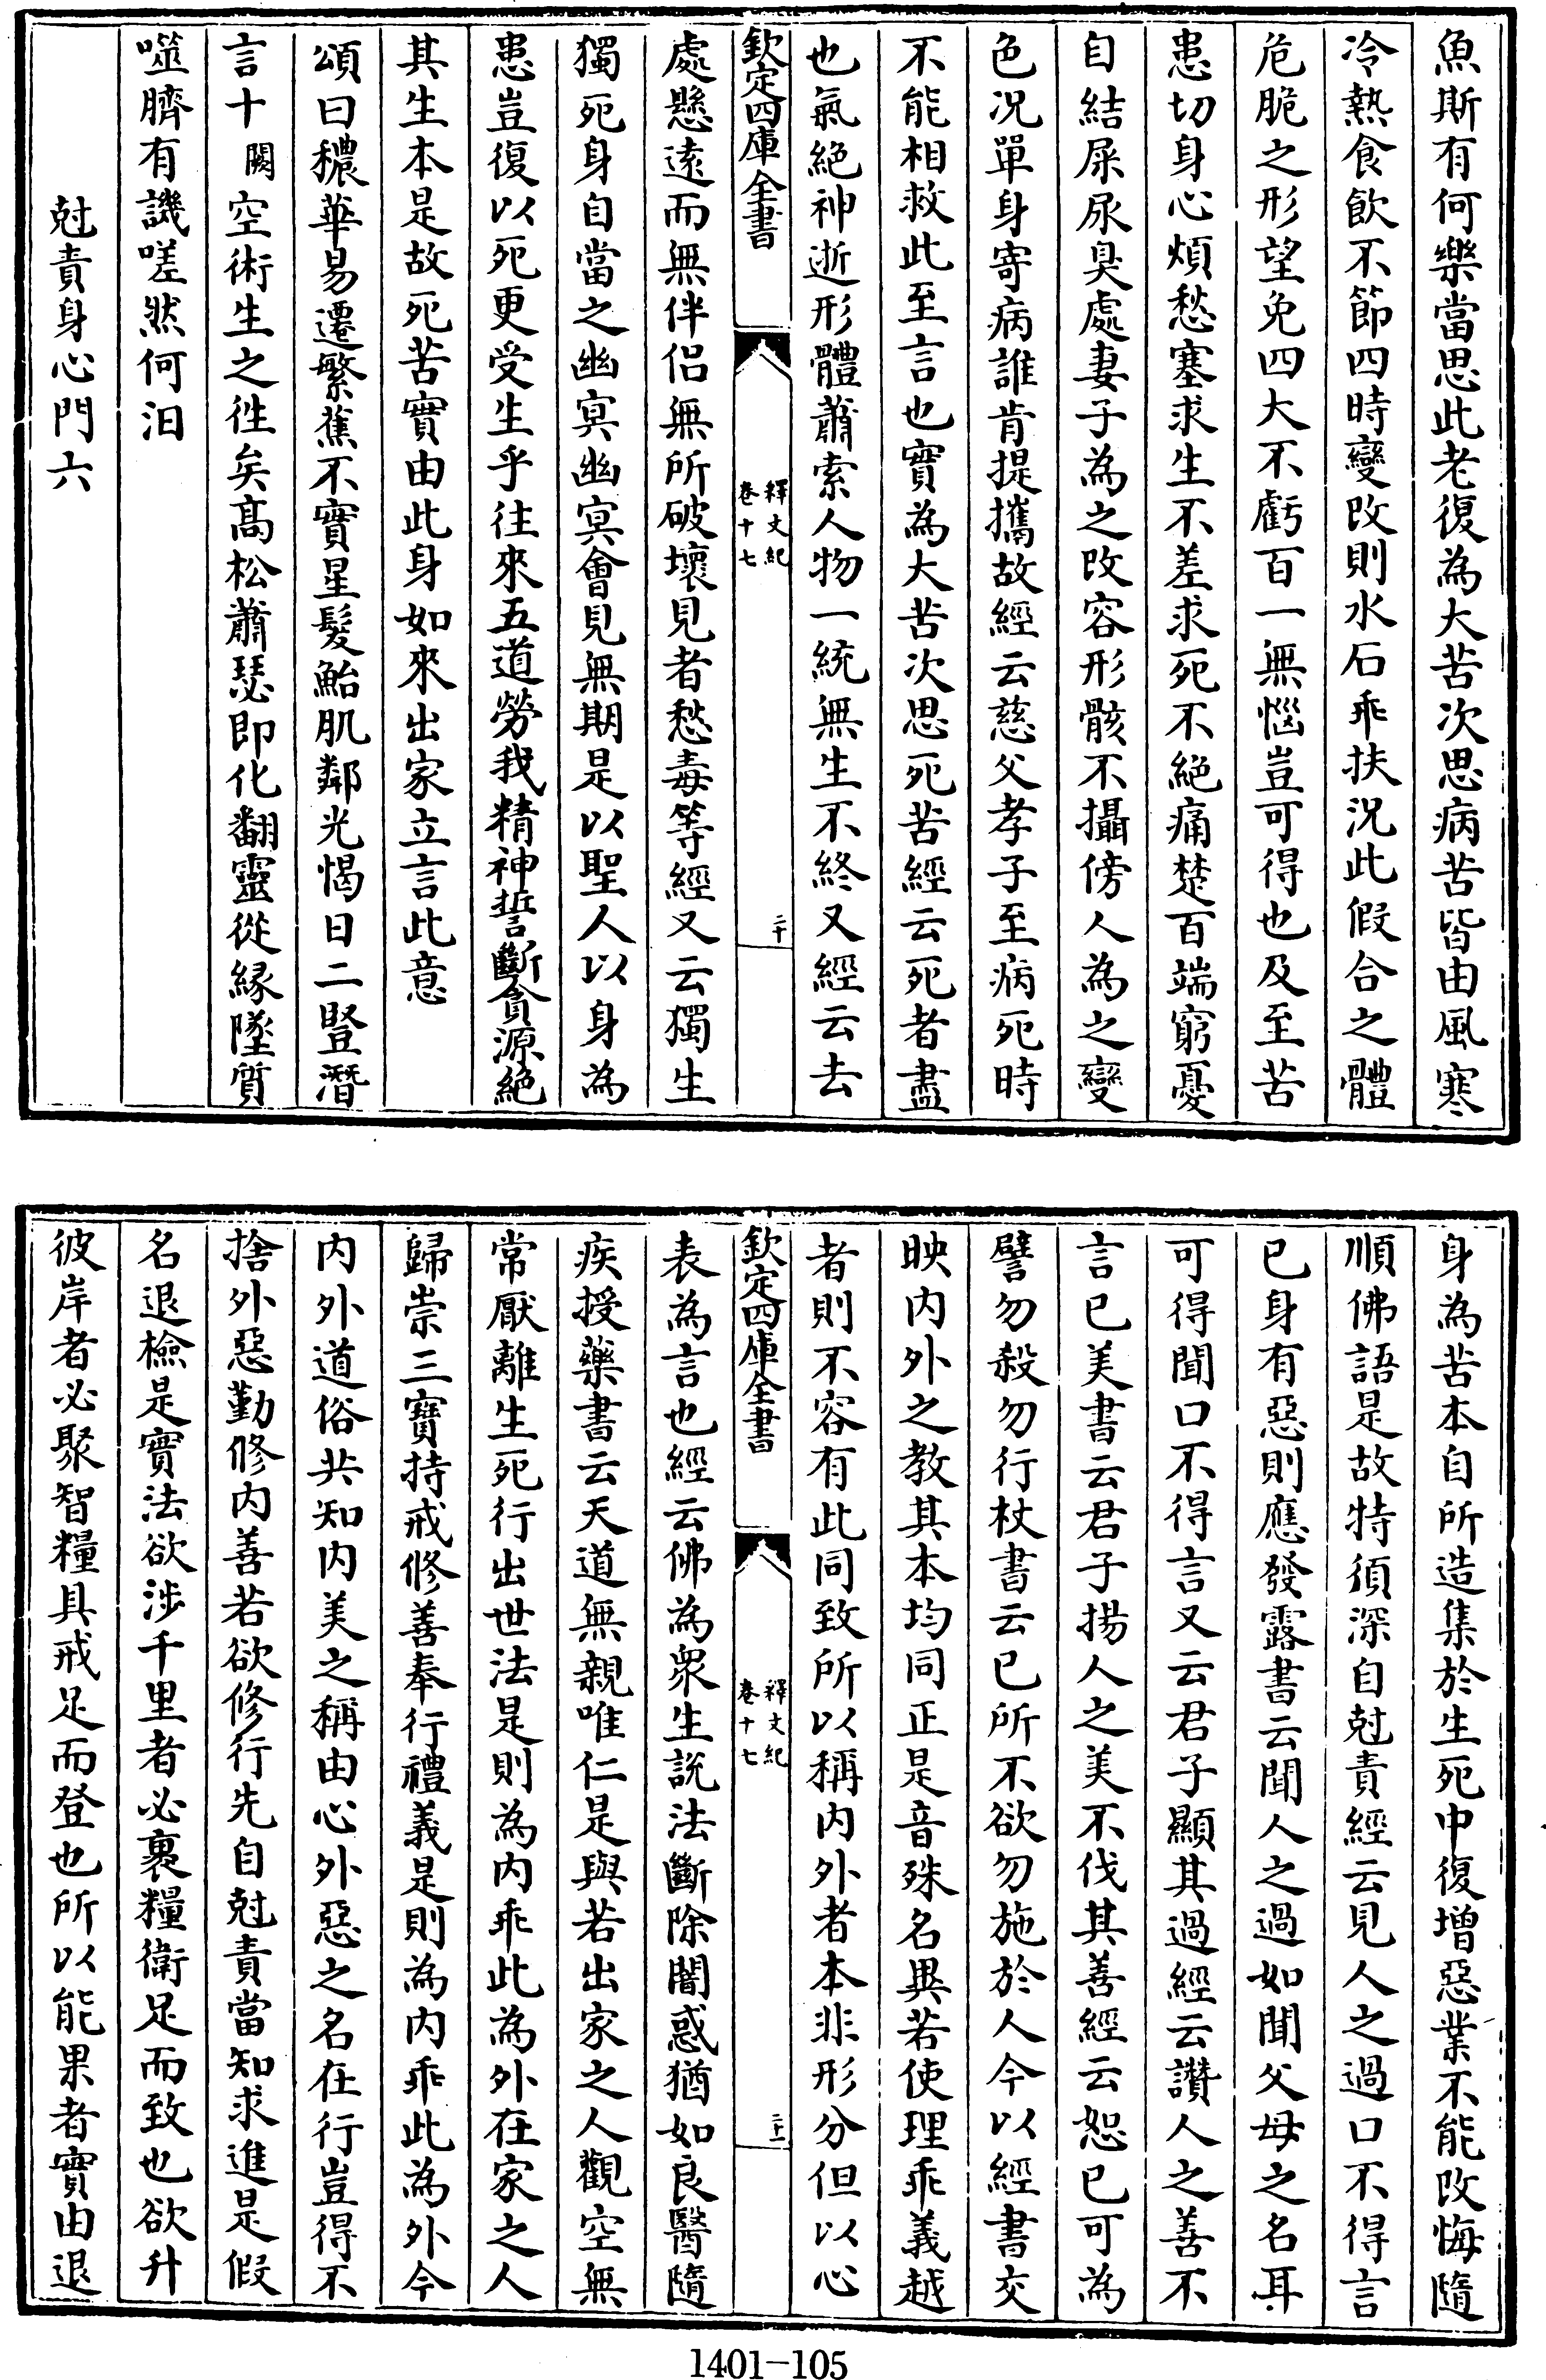 魚斯有何樂當思此老復為大苦次思病苦皆由風寒
冷熱食飲不節四時變改則水石乖扶況此假合之體
危脆之形望免四大不虧百一無惱豈可得也及至苦
患切身心煩愁塞求生不差求死不絶痛楚百端窮憂
自結屎尿臭處妻子為之改容形骸不攝傍人為之變
色况單身寄病誰肯提攜故經云慈父孝子至病死時
不能相救此至言也實為大苦次思死苦經云死者盡
也氣絶神逝形體蕭索人物一統無生不終又經云去
欽定四庫全書
釋文紀
卷十七
二十
處懸遠而無伴侣無所破壞見者愁毒等經又云獨生
獨死身自當之幽冥幽冥會見無期是以聖人以身為
患豈復以死更受生乎往來五道勞我精神誓斷貪源絶
其生本是故死苦實由此身如來出家立言此意
頌曰穠華易遷繁蕉不實星髮鮐肌鄰光惕日二豎潛
言十闕空術生之徃矣髙松蕭瑟即化翻靈從緣墜質
噬臍有譏嗟然何汨
尅責身心門六
身為苦本自所造集於生死中復増惡業不能改悔隨
順佛語是故特須深自尅責經云見人之過口不得言
已身有惡則應發露書云聞人之過如聞父母之名耳
可得聞口不得言又云君子顯其過經云讚人之善不
言已美書云君子揚人之美不伐其善經云恕已可為
譬勿殺勿行杖書云已所不欲勿施於人今以經書交
映内外之教其本均同正是音殊名異若使理乖義越
者則不容有此同致所以稱内外者本非形分但以心
欽定四庫全書
釋文紀
卷十七
二十一
表為言也經云佛為衆生説法斷除闇惑猶如良醫隨
疾授藥書云天道無親唯仁是與若出家之人觀空無
常厭離生死行出世法是則為内乖此為外在家之人
歸崇三寶持戒修善奉行禮義是則為内乖此為外今
内外道俗共知内美之稱由心外惡之名在行豈得不
捨外惡勤修内善若欲修行先自尅責當知求進是假
名退檢是實法欲渉千里者必裹糧衛足而致也欲升
彼岸者必聚智糧具戒足而登也所以能果者實由退
1401-105